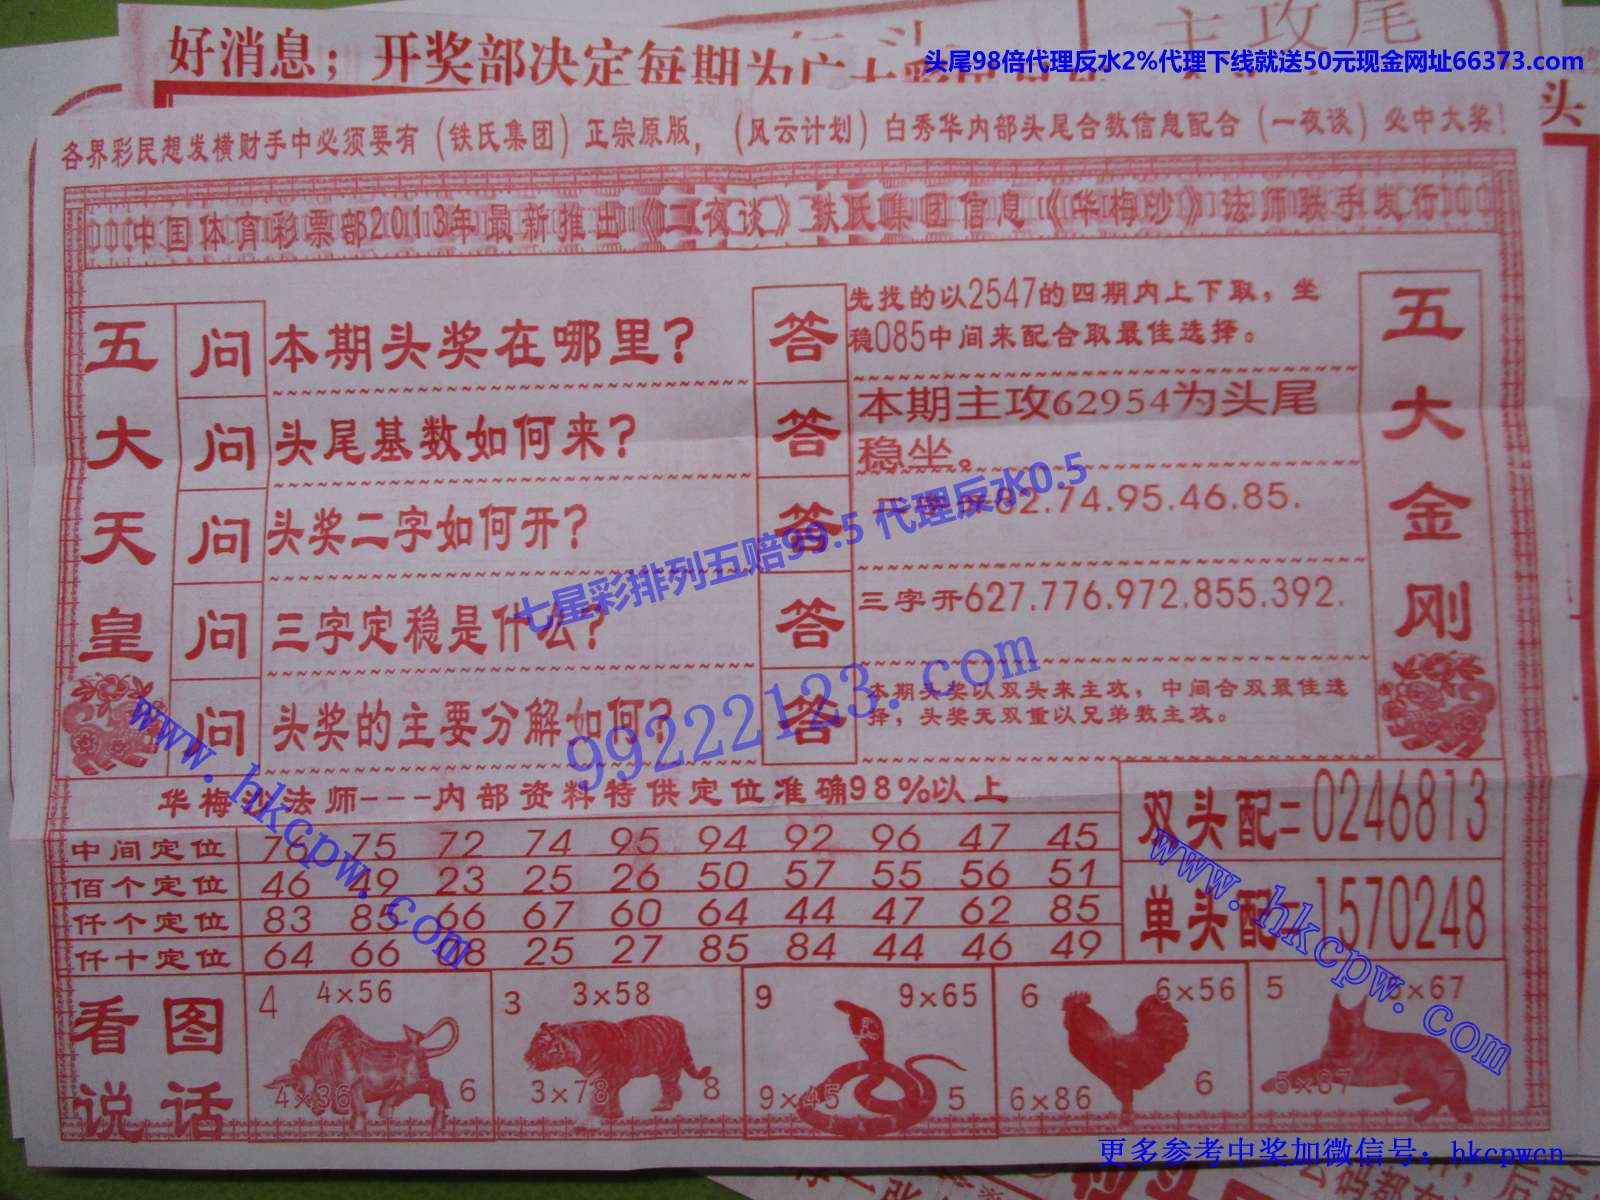 主攻尾
好消息；开奖部决定每期为广大彩
头尾98倍代理反水2%代理下线就送50元现金网址66373.com
头
各界彩民想发横财手中必须要有（铁氏集团）正宗原版，（风云计划）白秀华内部头尾合数信息配合（一夜谈）必中大奖！
中国体育彩票部2013年最新推出《一夜谈》铁氏集团信息《华梅沙》法师联手发行
五大天皇
问 本期头奖在哪里？
答 先找的以2547的四期内上下取，坐
稳085中间来配合取最佳选择。
问 头尾基数如何来？
答 本期主攻62954为头尾
稳坐。
问 头奖二字如何开？
答 二字开82.74.95.46.85.
问 三字定稳是什么？
答 三字开627.776.972.855.392.
问 头奖的主要分解如何？
答 本期头奖以双头来主攻，中间合双最佳选
择，头奖无双重以兄弟数主攻。
五大金刚
七星彩排列五赔99.5 代理反水0.5
99222123.com
www.hkcpw.com
华梅沙法师---内部资料特供定位准确98%以上
中间定位 76 75 72 74 95 94 92 96 47 45
佰个定位 46 49 23 25 26 50 57 55 56 51
仟个定位 83 85 66 67 60 64 44 47 62 85
仟十定位 64 66 68 25 27 85 84 44 46 49
双头配=0246813
单头配=1570248
www.hkcpw.com
看图
说话
4 4×56
4×36 6
3 3×58
3×78 8
9 9×65
9×45 5
6 6×56
6×86 6
5 5×67
5×87 7
更多参考中奖加微信号：hkcpwcn